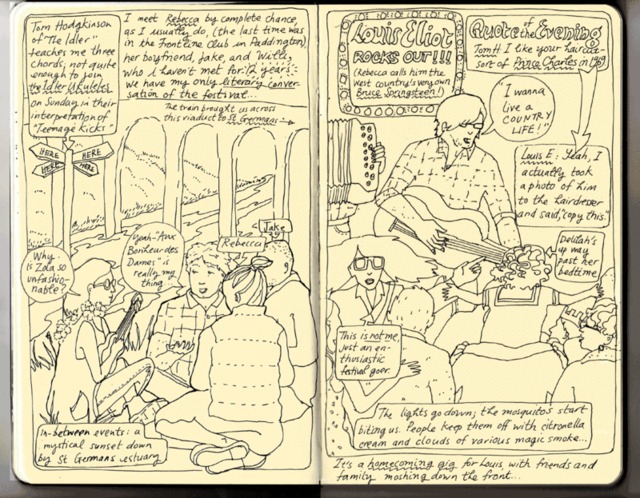 Tom Hodgkinson
of "The Idler"
teaches me three
chords; not quite
enough to join
the Idler Ukulele
on Sunday in their
interpretation of
"Teenage Kicks"
I meet Rebecca by complete chance,
as I usually do, (the last time was
in the Frontline Club in Paddington)
her boyfriend, Jake, and Will,
who I haven't met for 12 years
we have my only literary conver-
sation of the festival...
The train brought us across
this viaduct to St Germans
HERE
HERE
HERE
HERE
Why
is Zola so
unfashio-
nable?
Yeah - "Aux
Bonheur des
Dames" is
really my
thing
Rebecca
Jake
In-between events: a
mystical sunset down
by St Germans estuary
Louis Eliot
ROCKS OUT!!!
(Rebecca calls him the
west country's very own
Bruce Springsteen!)
Quote of the Evening
Tom H: I like your haircut-
sort of Prince Charles in 1969
"I wanna
live a
COUNTRY
LIFE!"
Louis E: Yeah, I
actually took
a photo of him
to the hairdresser
and said, 'copy this'.
Delilah's
up way
past her
bedtime
This is not me,
just an en-
thusiastic
festival goer.
The lights go down; the mosquitos start
biting us. People keep them off with citronella
cream and clouds of various magic smoke...
It's a homecoming gig for Louis, with friends and
family moshing down the front...